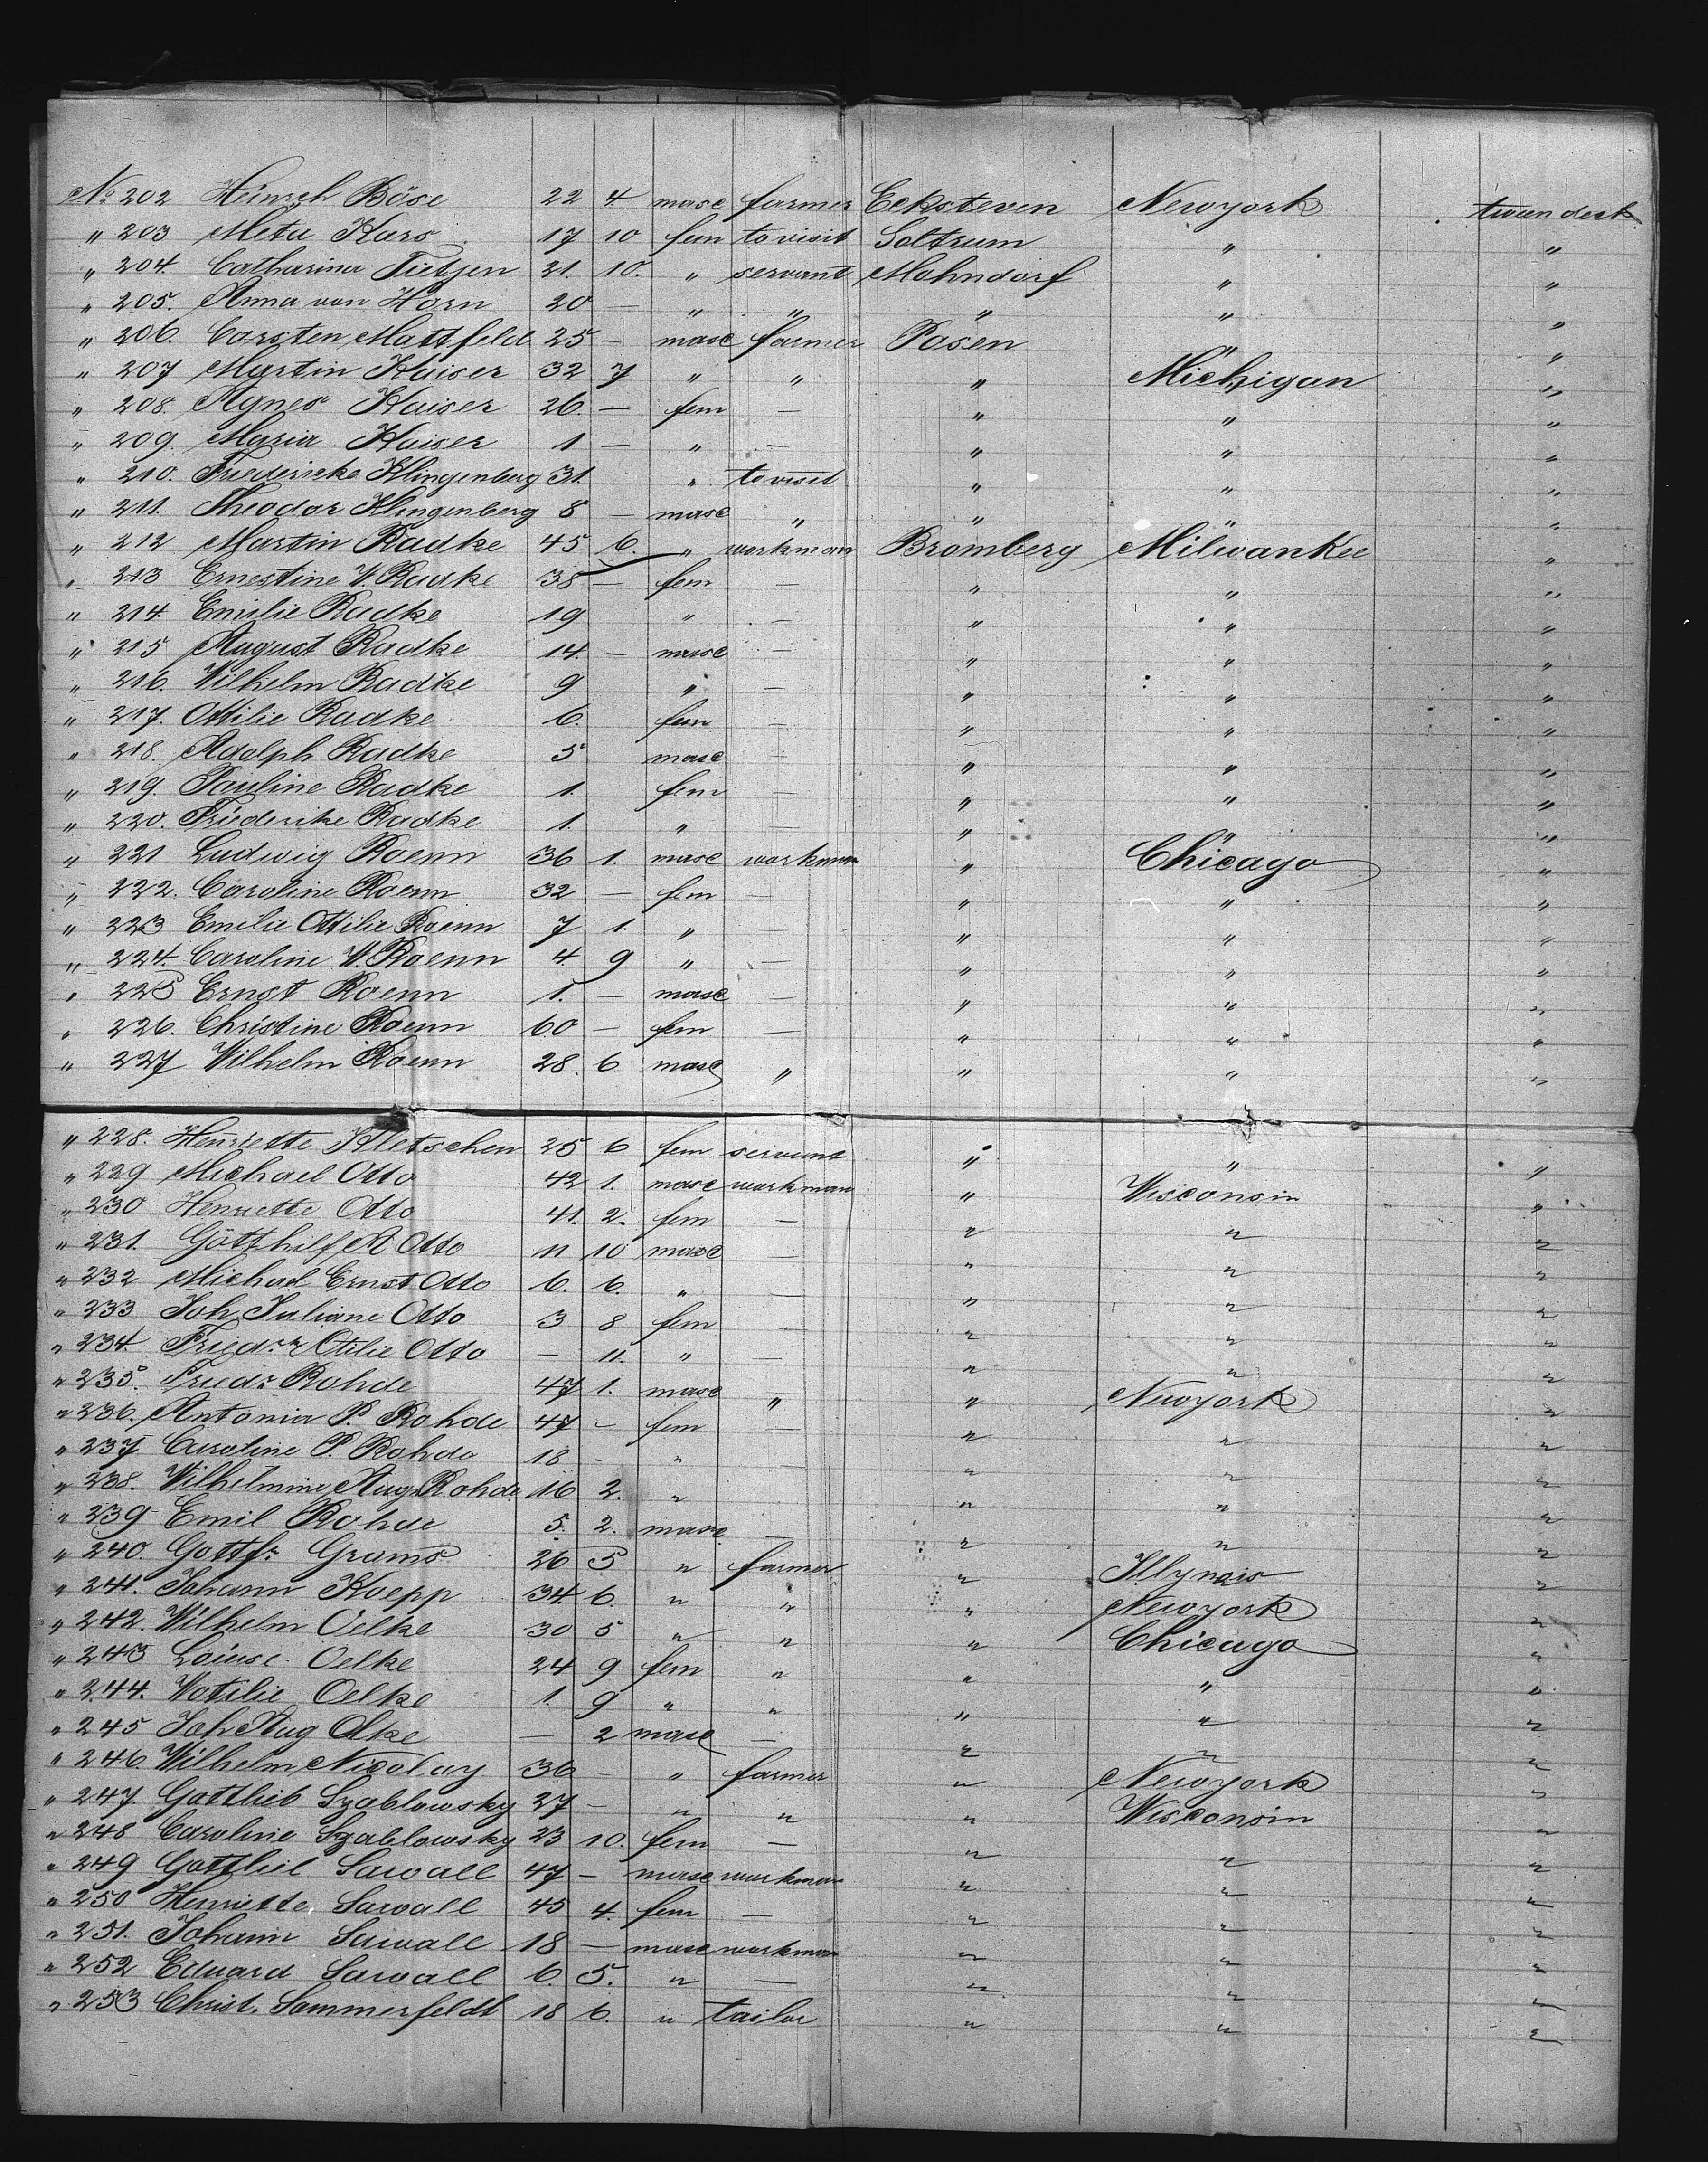 No 202 Heinrich Böse 22 4 masc farmer Ecksteven Newyork tween deck
" 203 Meta Kars 17 10 fem to visit Soltrum " "
" 204. Catharina Tietjen 21. 10. " servant Mohndorf " "
" 205. Anna von Horn 20 — " " " " "
" 206. Carsten Mattfeld 25 — masc farmer Posen " "
" 207 Martin Kaiser 32 7 " " " Michigan "
" 208 Agnes Kaiser 26. — fem — " " "
" 209. Maria Kaiser 1 — " — " " "
" 210. Friedericke Klingenberg 31. " to visit " " "
" 211. Theodor Klingenberg 8 — masc " " " "
" 212 Martin Radke 45 6. " workman Bromberg Milwankee "
" 213 Ernestine W. Radke 38 — fem — " " "
" 214. Emilie Radke 19 " — " " "
" 215 August Radke 14. — masc — " " "
" 216. Wilhelm Radke 9 " — " " "
" 217. Ottilie Radke 6. fem — " " "
" 218. Adolph Radke 5 masc — " " "
" 219. Pauline Radke 1. fem — " " "
" 220. Friederike Radke 1. " — " " "
" 221 Ludwig Roenn 36 1. masc workman " Chicago "
" 222. Caroline Roenn 32 — fem — " " "
" 223 Emilie Ottilie Roenn 7 1. " — " " "
" 224. Caroline W. Roenn 4 9 " — " " "
" 225 Ernst Roenn 1. — masc — " " "
" 226. Christine Roenn 60 — fem — " " "
" 227 Wilhelm Roenn 28. 6 masc " " " "
" 228. Henriette Kletschen 25 6 fem servant " " "
" 229 Michael Otto 42 1. masc workman " Wisconsin "
" 230 Henriette Otto 41. 2. fem — " " "
" 231. Gotthilf A Otto 11 10 masc — " " "
" 232 Michael Ernst Otto 6. 6. " — " " "
" 233 Joh. Juliane Otto 3 8 fem — " " "
" 234. Friedr. Otilie Otto — 11. " — " " "
" 235. Friedr. Rohde 47 1. masc " " Newyork "
" 236. Antonia P. Rohde 47 — fem — " " "
" 237 Caroline P. Rohde 18 - " — " " "
" 238. Wilhelmine Aug. Rohde 16 2. " " " "
" 239 Emil Rohde 5. 2. masc — " " "
" 240. Gottfr. Grams 26 5 " farmer " Illynois "
" 241. Johann Koepp 34 6. " " " Newyork "
" 242. Wilhelm Oelke 30 5 " " " Chicago "
" 243 Louise Oelke 24 9 fem " " " "
" 244. Wotilie Oelke 1. 9 " " " " "
" 245 Joh Aug Olke — 2 masc — " " "
" 246. Wilhelm Nicolay 36 - " farmer " Newyork "
" 247. Gottlieb Szablowsky 27 — " " " Wisconsin "
" 248 Caroline Szablowsky 23 10. fem — " " "
" 249 Gottlieb Sawall 47 — masc workman " " "
" 250 Henriette Sawall 45 4. fem — " " "
" 251. Johann Sawall 18 — masc workman " " "
" 252 Eduard Sawall 6. 5. " — " " "
" 253 Christ. Sommerfeldt 18 6. " tailor " " "